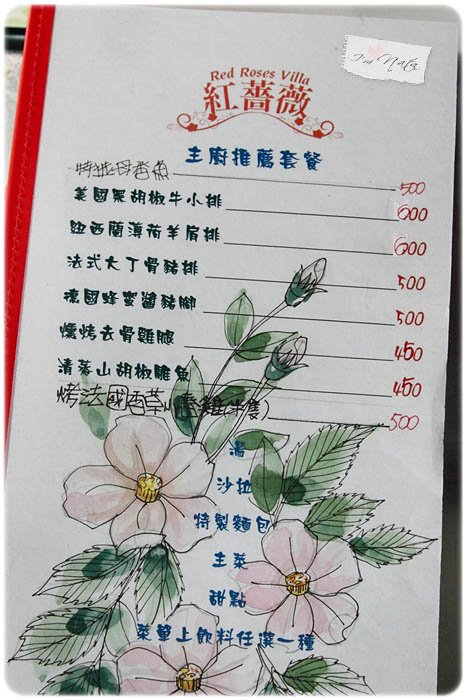 I'm Nata
Red Roses Villa
紅薔薇
主廚推薦套餐
香魚 500
美國黑胡椒牛小排 600
紐西蘭薄荷羊肩排 600
法式大丁骨豬排 500
德國蜂蜜醬豬腳 500
燻烤去骨雞腿 450
清蒸山胡椒雕魚 450
烤法國香草春雞(半隻) 500
湯
沙拉
特製麵包
主菜
甜點
菜單上飲料任選一種